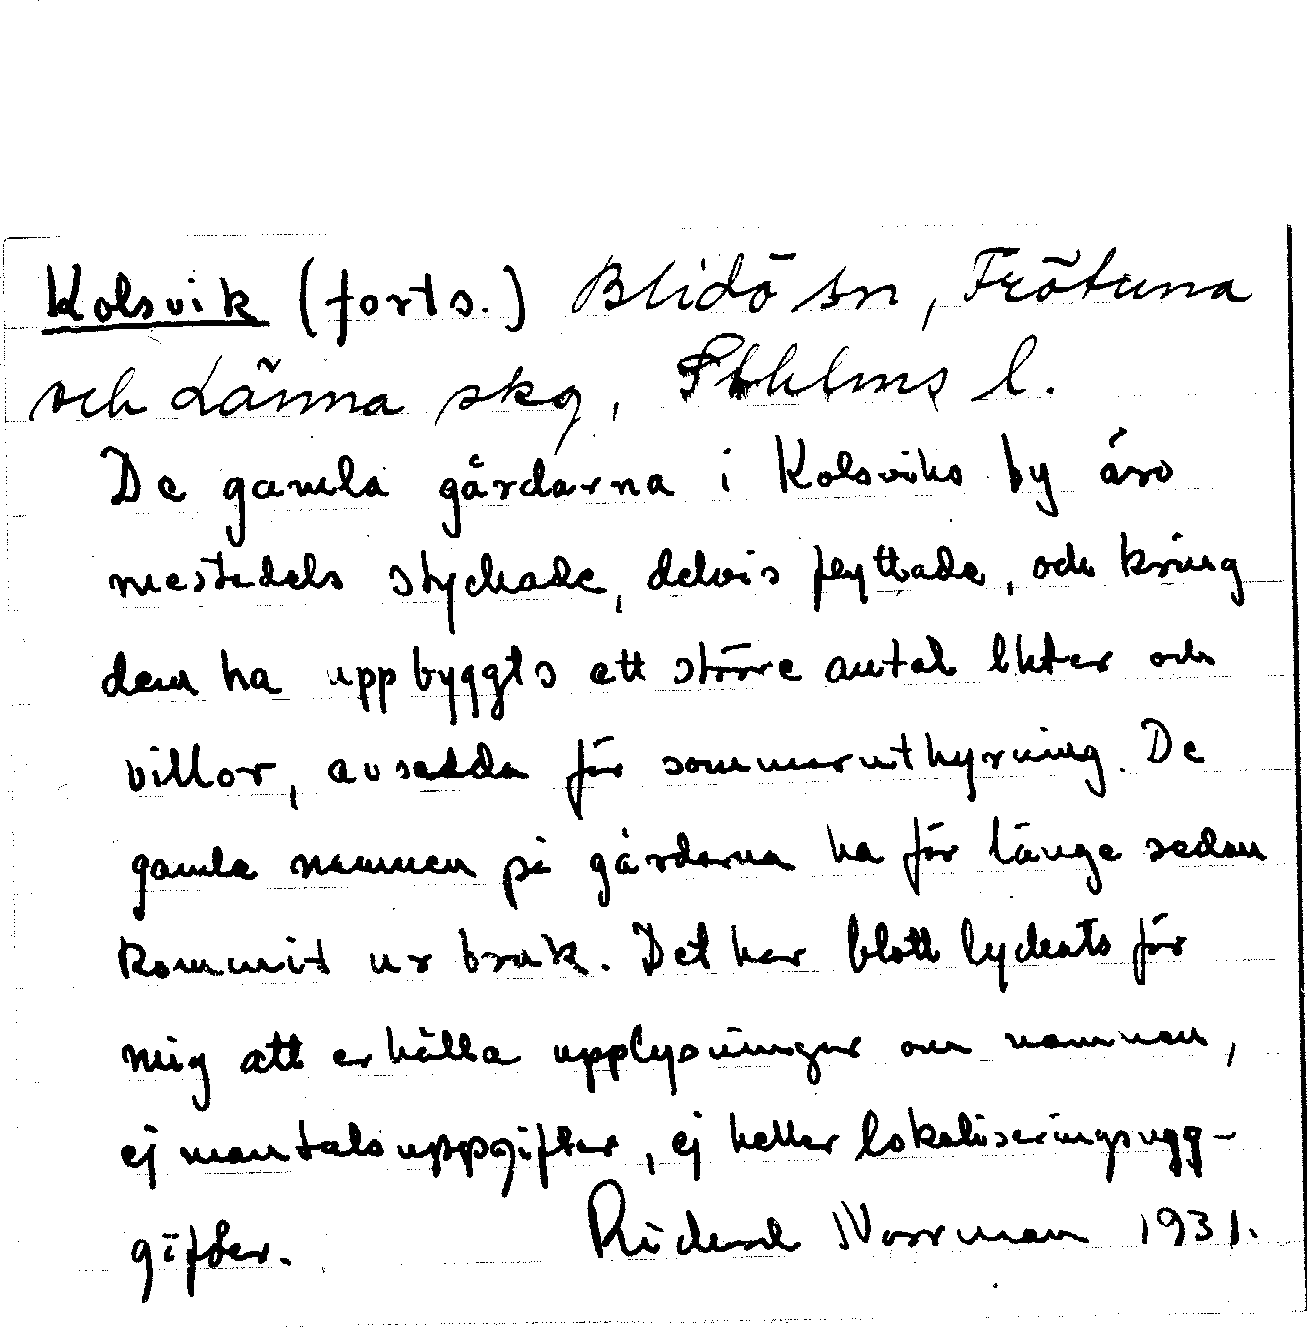 Kolsvik (forts.) Blidö sn, Frötuna
och Länna skg, Sthlms l.
De gamla gårdarna i Kolsviks by äro
mestadels styckade, delvis flyttade, och kring
dem ha uppbyggts ett större antal likter och
villor, avsedda för sommaruthyrning. De
gamla namnen på gårdarna ha för länge sedan
kommit ur bruk. Det har blott lyckats för
mig att erhålla upplysningar om namnen,
ej mantalsuppgifter, ej heller lokaliseringsupp-
gifter. Rickard Norrman 1931.